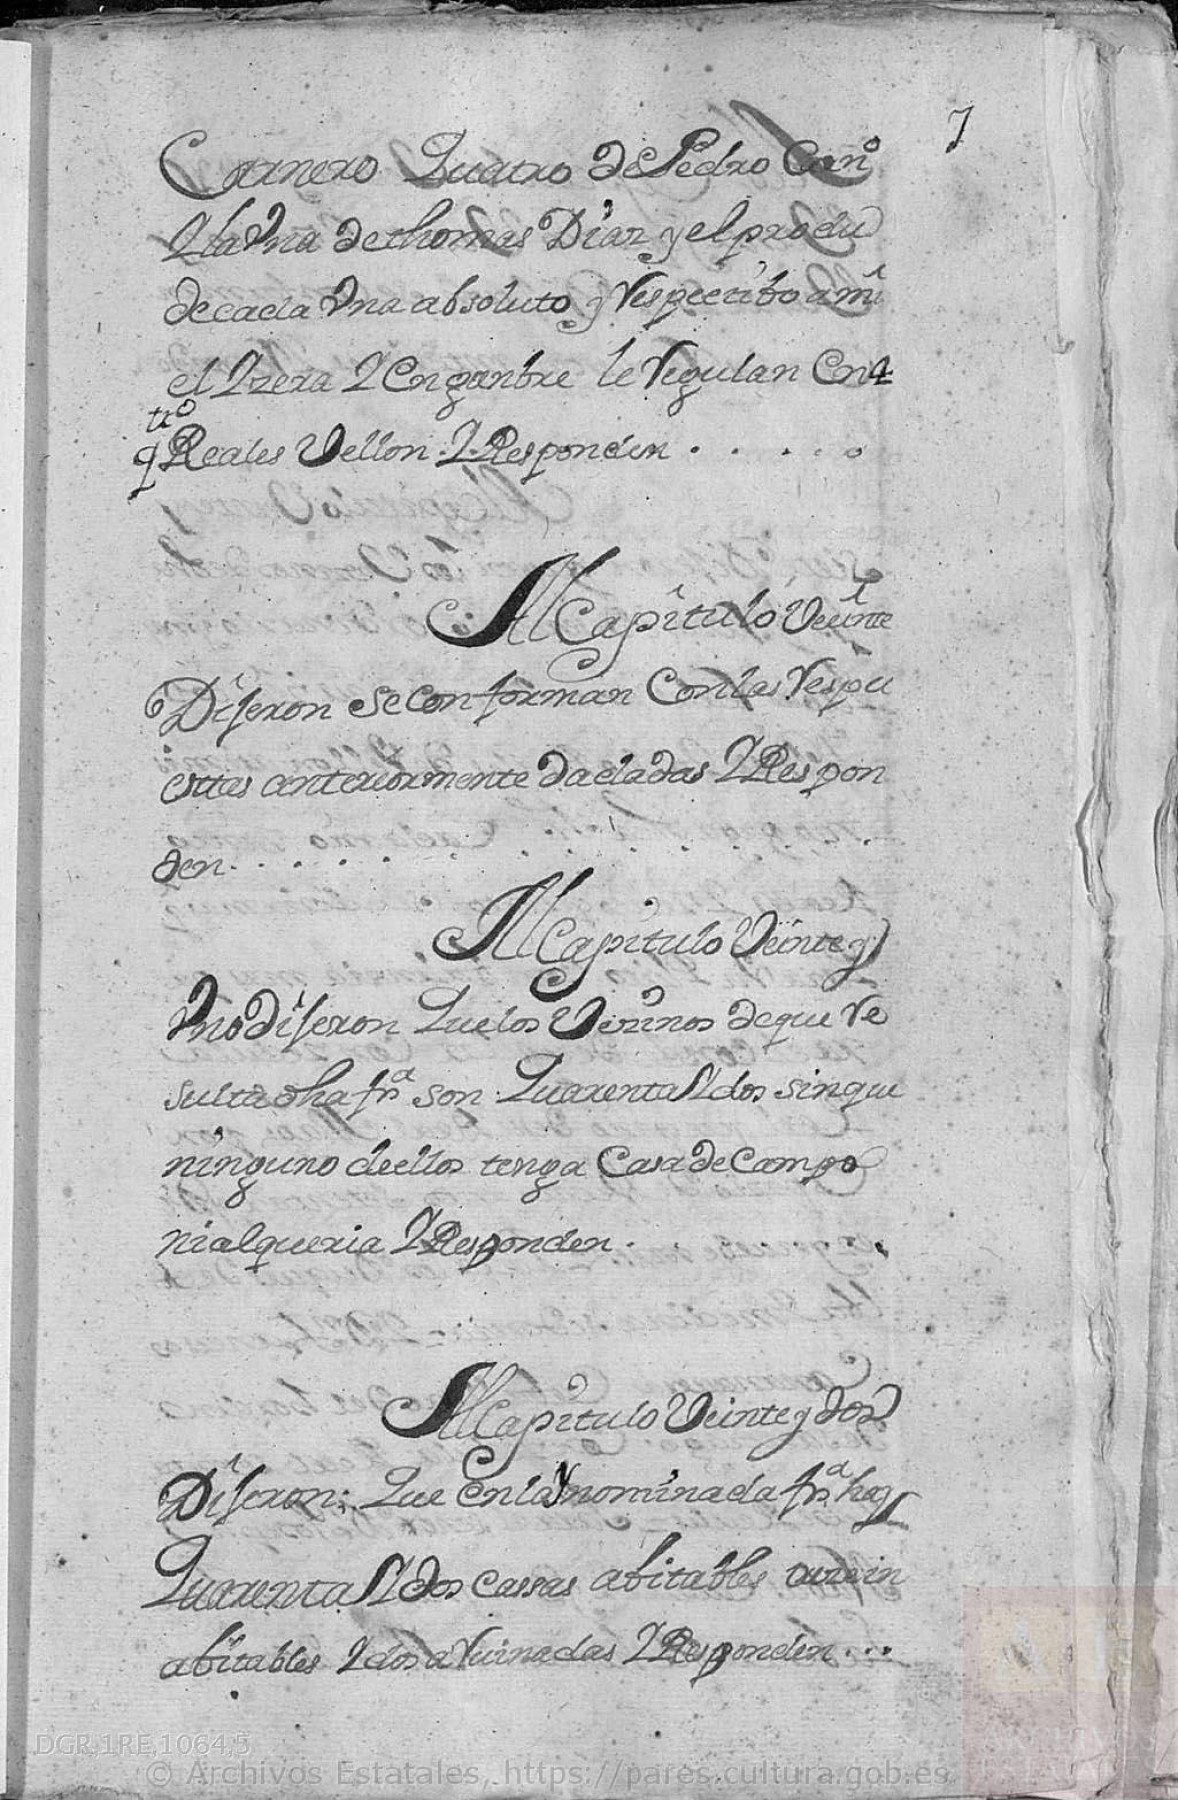 7
Carnero Quatro de Pedro Canº
Y la Vna de thomas Diaz y el produ
de cada Vna absoluto y Respectibo a mi
el Y zera Y Enganbre le Regulan En 4
qtrº Reales Vellon Y Responden . . . . .
Al Capitulo Veeinte
Diseron se conforman Con las Respu
esttas anteriormente dadadas Y Respon
den . . . . .
Al Capitulo Veinte y
Vno diseron Que los Vezinos de que Re
sulta dha frª son Quarenta Y dos sin que
ninguno de ellos tenga Casa de Campo
ni alqueria Y Responden . . . .
Al Capitulo Veinte y dos
Diseron; Que En la nominada frª hay
Quarenta Y dos cassas abitables in
abitables Y dos aRuinadas Y Responden ...
DGR,1RE,1064,5
© Archivos Estatales, https://pares.cultura.gob.es